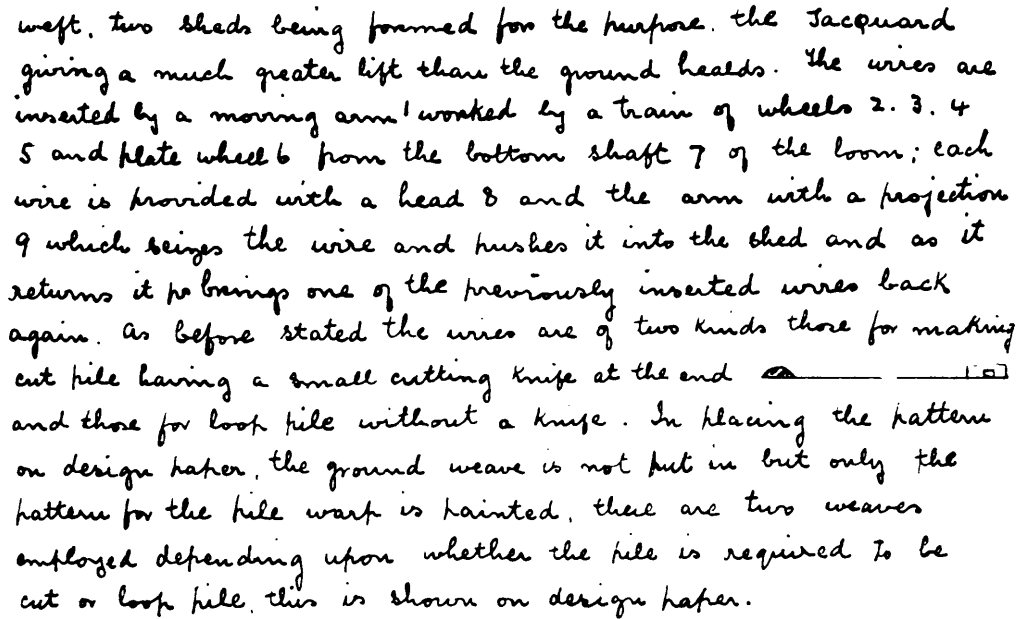 weft, two sheds being formed for the purpose. the Jacquard
giving a much greater lift than the ground healds. The wires are
inserted by a moving arm 1 worked by a train of wheels 2. 3. 4
5 and plate wheel 6 from the bottom shaft 7 of the loom; each
wire is provided with a head 8 and the arm with a projection
9 which seizes the wire and pushes it into the shed and as it
returns it brings one of the previously inserted wires back
again. As before stated the wires are of two kinds those for making
cut pile having a small cutting knife at the end
and those for loop pile without a knife. In placing the pattern
on design paper, the ground weave is not put in but only the
pattern for the pile warp is painted, there are two weaves
employed depending upon whether the pile is required to be
cut or loop pile, this is shown on design paper.